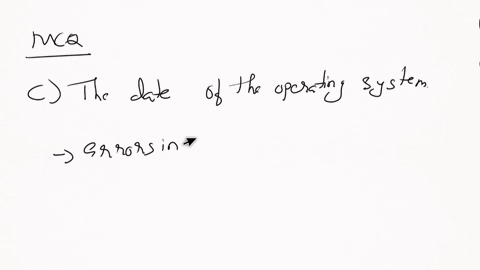 MCQ
C) The date of the operating system.
→ errors in